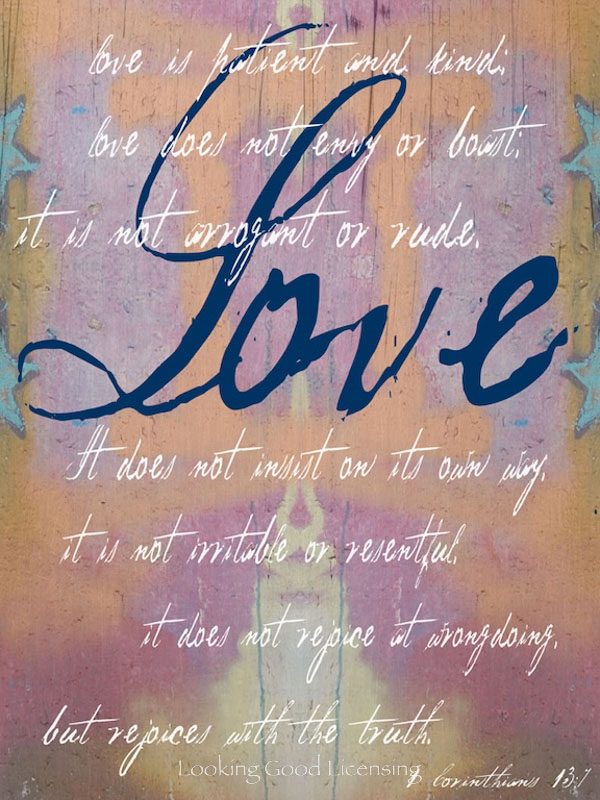 love is patient and kind;
love does not envy or boast;
it is not arrogant or rude.
Love
It does not insist on its own way;
it is not irritable or resentful;
it does not rejoice at wrongdoing,
but rejoices with the truth.
Looking Good Licensing
Corinthians 13:7